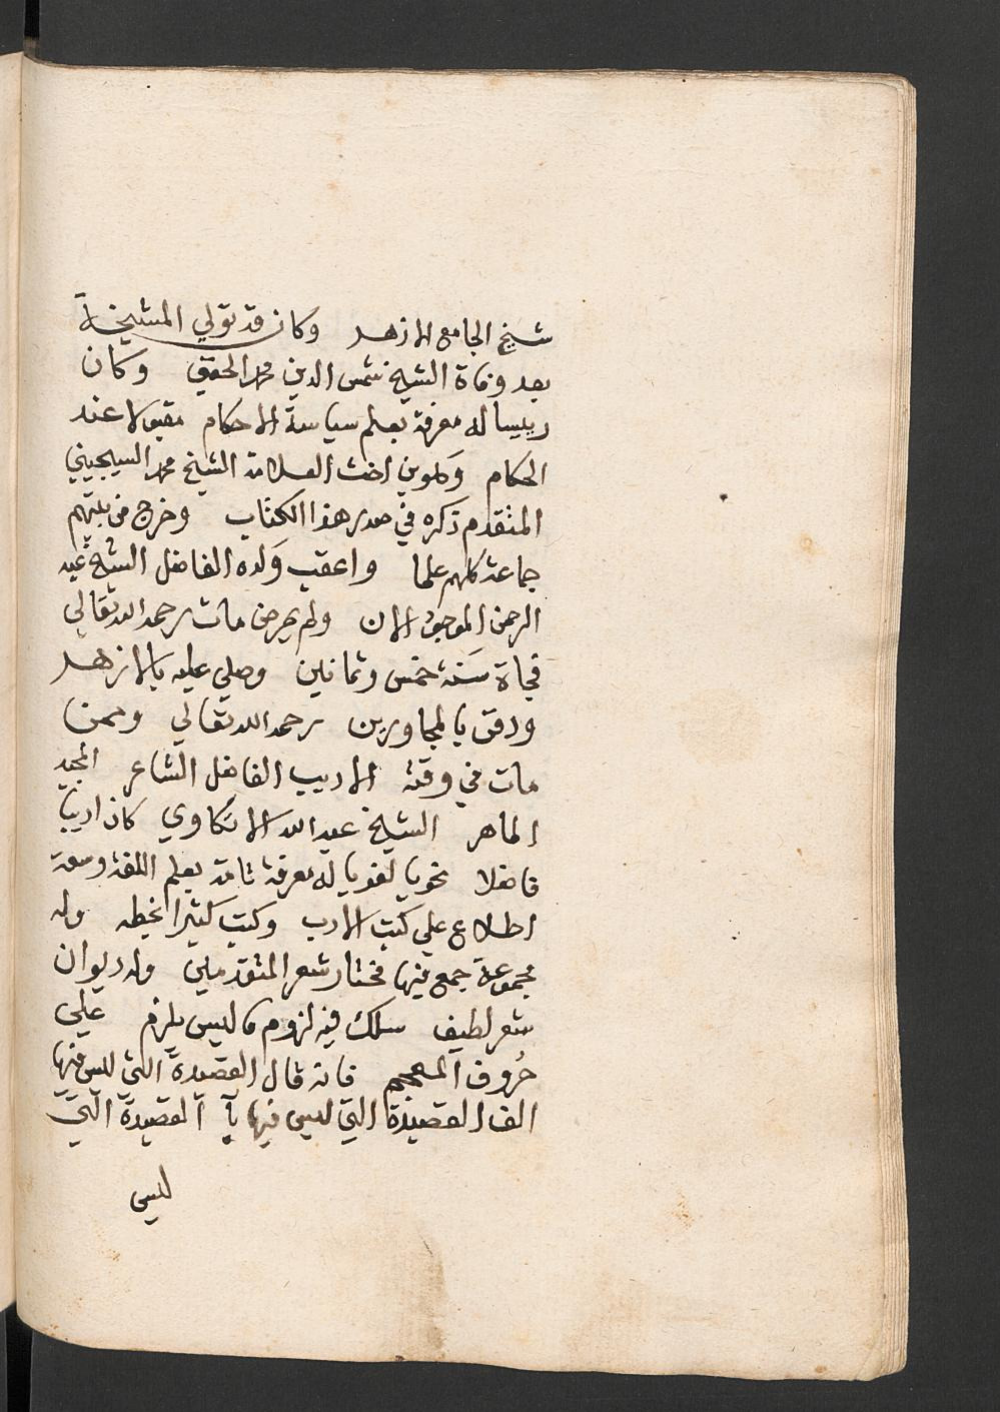 شيخ الجامع الازهر وكان قد تولي المشيخة
بعد وفاة الشيخ شمس الدين محمد الحفني وكان
رييسا له معرفة بعلم سياسة الاحكام مقبولا عند
الحكام وهو بن اخت العلامة الشيخ محمد السجيني
المتقدم ذكره في صدر هذا الكتاب وخرج من بيتهم
جماعة كلهم علما واعقب ولده الفاضل الشيخ عبد
الرحمن الموجود الان ولم يمرض مات رحمه الله تعالي
فجاة سنة خمس وثمانين وصلي عليه بالازهر
ودفن بالمجاورين رحمه الله تعالي وممن
مات في وقته الاديب الفاضل الشاعر المجيد
الماهر الشيخ عبد الله الادكاوي كان اديبا
فاضلا نحويا لغويا له معرفة تامة بعلم اللغة وسعة
اطلاع علي كتب الادب وكتب كثيرا بخطه وله
مجموعة جمع فيها مختار شعر المتقدمين وله ديوان
شعر لطيف سلك فيه لزوم ما ليس يلزم علي
حروف المعجم فانه قال القصيدة التي ليس فيها
الف القصيدة التي ليس فيها بآ القصيدة التي
ليس